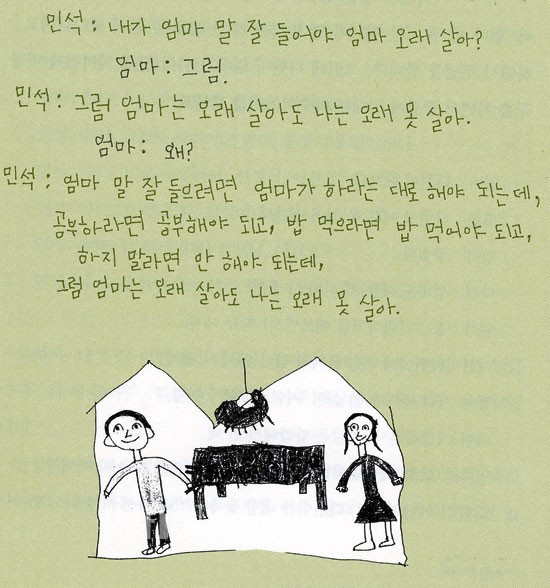 민석 : 내가 엄마 말 잘 들어야 엄마 오래 살아?
엄마 : 그럼.
민석 : 그럼 엄마는 오래 살아도 나는 오래 못 살아.
엄마 : 왜?
민석 : 엄마 말 잘 들으려면 엄마가 하라는 대로 해야 되는데,
공부하라면 공부해야 되고, 밥 먹으라면 밥 먹어야 되고,
하지 말라면 안 해야 되는데,
그럼 엄마는 오래 살아도 나는 오래 못 살아.